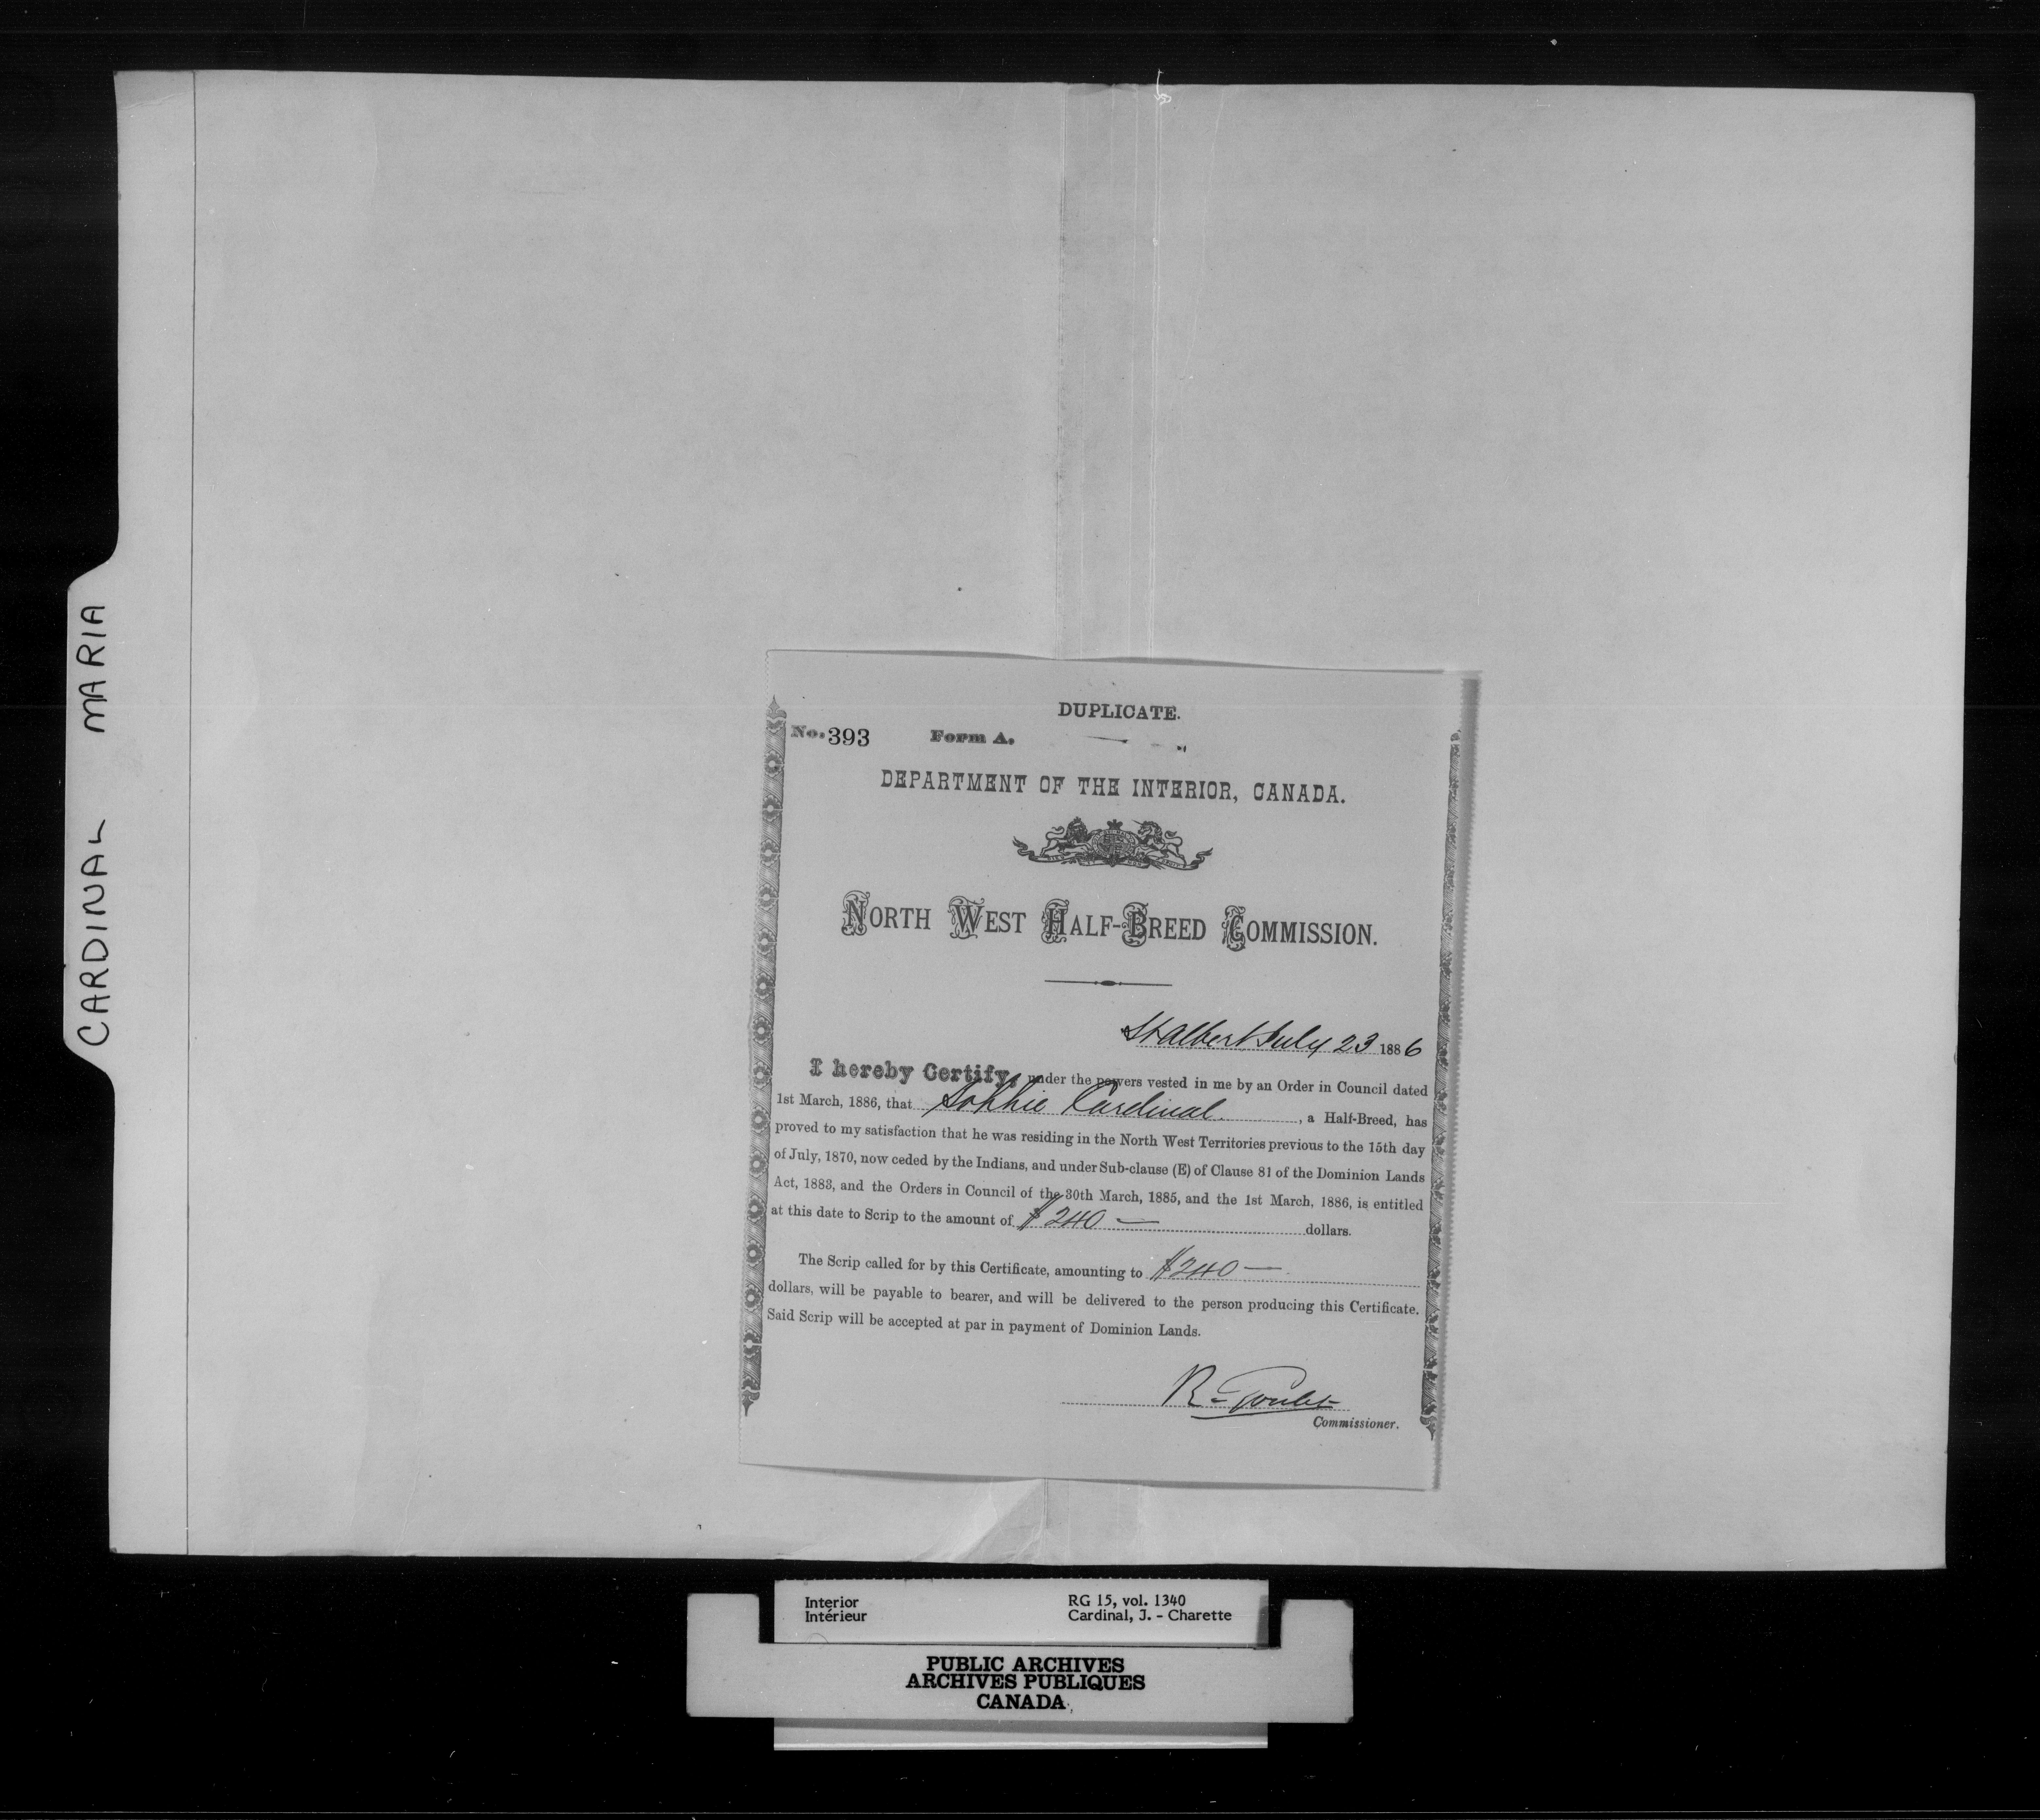 CARDINAL MARIA
DUPLICATE.
No. 393 Form A.
DEPARTMENT OF THE INTERIOR, CANADA.
NORTH WEST HALF-BREED COMMISSION.
St Albert July 23 1886
I hereby Certify, under the powers vested in me by an Order in Council dated
1st March, 1886, that Sophie Cardinal , a Half-Breed, has
proved to my satisfaction that he was residing in the North West Territories previous to the 15th day
of July, 1870, now ceded by the Indians, and under Sub-clause (E) of Clause 81 of the Dominion Lands
Act, 1883, and the Orders in Council of the 30th March, 1885, and the 1st March, 1886, is entitled
at this date to Scrip to the amount of $240 — dollars.
The Scrip called for by this Certificate, amounting to $240 —
dollars, will be payable to bearer, and will be delivered to the person producing this Certificate.
Said Scrip will be accepted at par in payment of Dominion Lands.
R. Goulet
Commissioner.
Interior RG 15, vol. 1340
Intérieur Cardinal, J. - Charette
PUBLIC ARCHIVES
ARCHIVES PUBLIQUES
CANADA